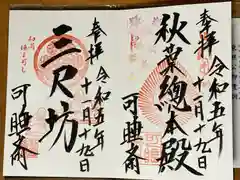 奉拝
令和五年
十一月十九日
秋葉總本殿
可睡斎
奉拝
令和五年
十一月十九日
三尺坊
可睡斎